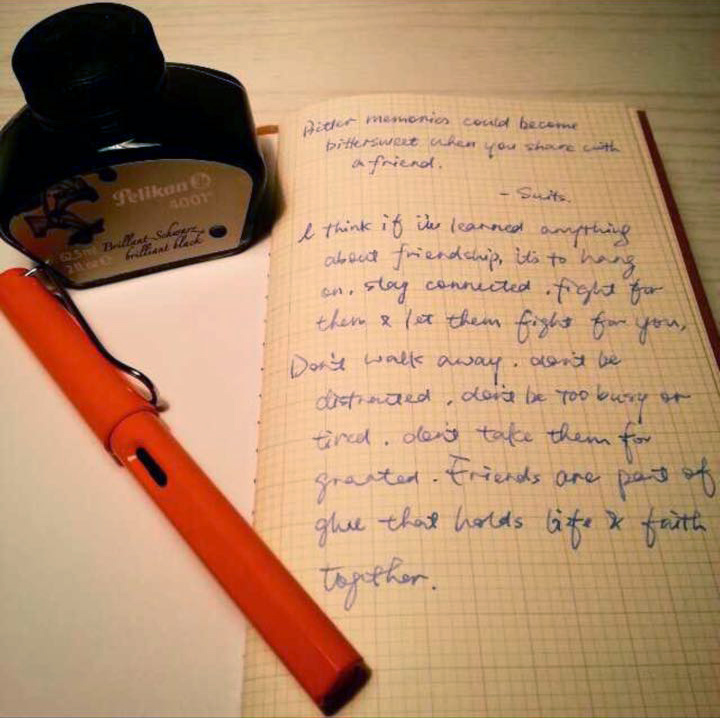 Pelikan
4001
62.5 ml
Brillant-Schwarz
brilliant black
Bitter memories could become
bittersweet when you share with
a friend.
- Suits.
I think if i've learned anything
about friendship, it's to hang
on, stay connected, fight for
them & let them fight for you,
Don't walk away, don't be
distracted, don't be too busy or
tired, don't take them for
granted. Friends are part of
glue that holds life & faith
together.